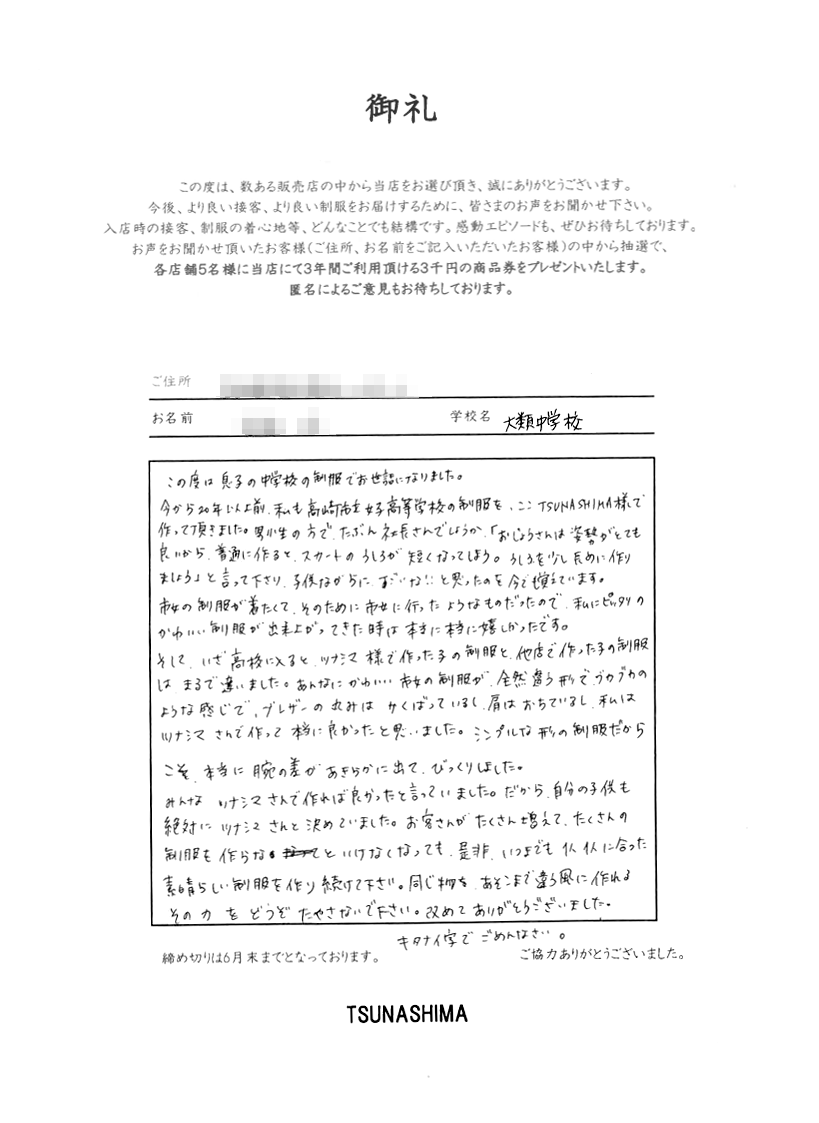 御礼
この度は、数ある販売店の中から当店をお選び頂き、誠にありがとうございます。
今後、より良い接客、より良い制服をお届けするために、皆さまのお声をお聞かせ下さい。
入店時の接客、制服の着心地等、どんなことでも結構です。感動エピソードも、ぜひお待ちしております。
お声をお聞かせ頂いたお客様(ご住所、お名前をご記入いただいたお客様)の中から抽選で、
各店舗5名様に当店にて3年間ご利用頂ける3千円の商品券をプレゼントいたします。
匿名によるご意見もお待ちしております。
ご住所
お名前 学校名 大類中学校
この度は息子の中学校の制服でお世話になりました。
今から20年以上前、私も高崎市立女子高等学校の制服を、ここTSUNASHIMA様で
作って頂きました。男性の方で、たぶん社長さんでしょうか、「おじょうさんは姿勢がとても
良いから、普通に作ると、スカートのうしろが短くなってしまう。うしろを少し長めに作り
ましょう」と言って下さり、子供ながらに、すごいな!!と思ったのを今でも覚えています。
市女の制服が着たくて、そのために市女に行ったようなものだったので、私にピッタリの
かわいい制服が出来上がってきた時は本当に本当に嬉しかったです。
そして、いざ高校に入ると、ツナシマ様で作った子の制服と、他店で作った子の制服
は、まるで違いました。あんなにかわいい市女の制服が、全然違う形でブカブカの
ような感じで、ブレザーの丸みはかくばっているし、肩はおちているし、私は
ツナシマさんで作って本当に良かったと思いました。シンプルな形の制服だから
こそ、本当に腕の差があきらかに出て、びっくりしました。
みんなツナシマさんで作れば良かったと言っていました。だから、自分の子供も
絶対にツナシマさんと決めていました。お客さんがたくさん増えて、たくさんの
制服を作らないといけなくなっても、是非、いつまでも仏仏に合った
素晴らしい制服を作り続けて下さい。同じ物を、あそこまで違う風に作れる
その力をどうぞたやさないで下さい。改めてありがとうございました。
キタナイ字でごめんなさい。
締め切りは6月末までとなっております。 ご協力ありがとうございました。
TSUNASHIMA